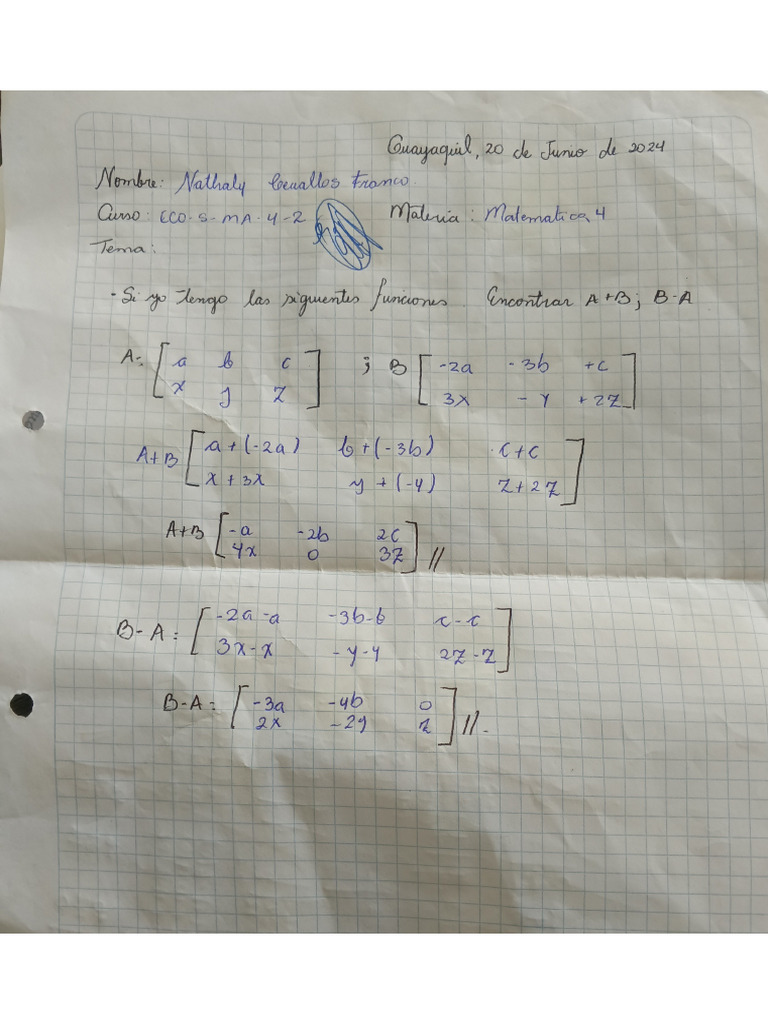 Guayaquil, 20 de Junio de 2024
Nombre: Nathaly Cevallos Franco.
Curso: ECO-S-MA-4-2 Materia: Matematica 4
Tema:
- Si yo tengo las siguientes funciones. Encontrar A+B; B-A
A= [ a b c ; B [ -2a -3b +c
x y z ] 3x -y +2z ]
A+B [ a+(-2a) b+(-3b) c+c
x+3x y+(-y) z+2z ]
A+B [ -a -2b 2c
4x 0 3z ] //
B-A = [ -2a-a -3b-b c-c
3x-x -y-y 2z-z ]
B-A = [ -3a -4b 0
2x -2y z ] //.